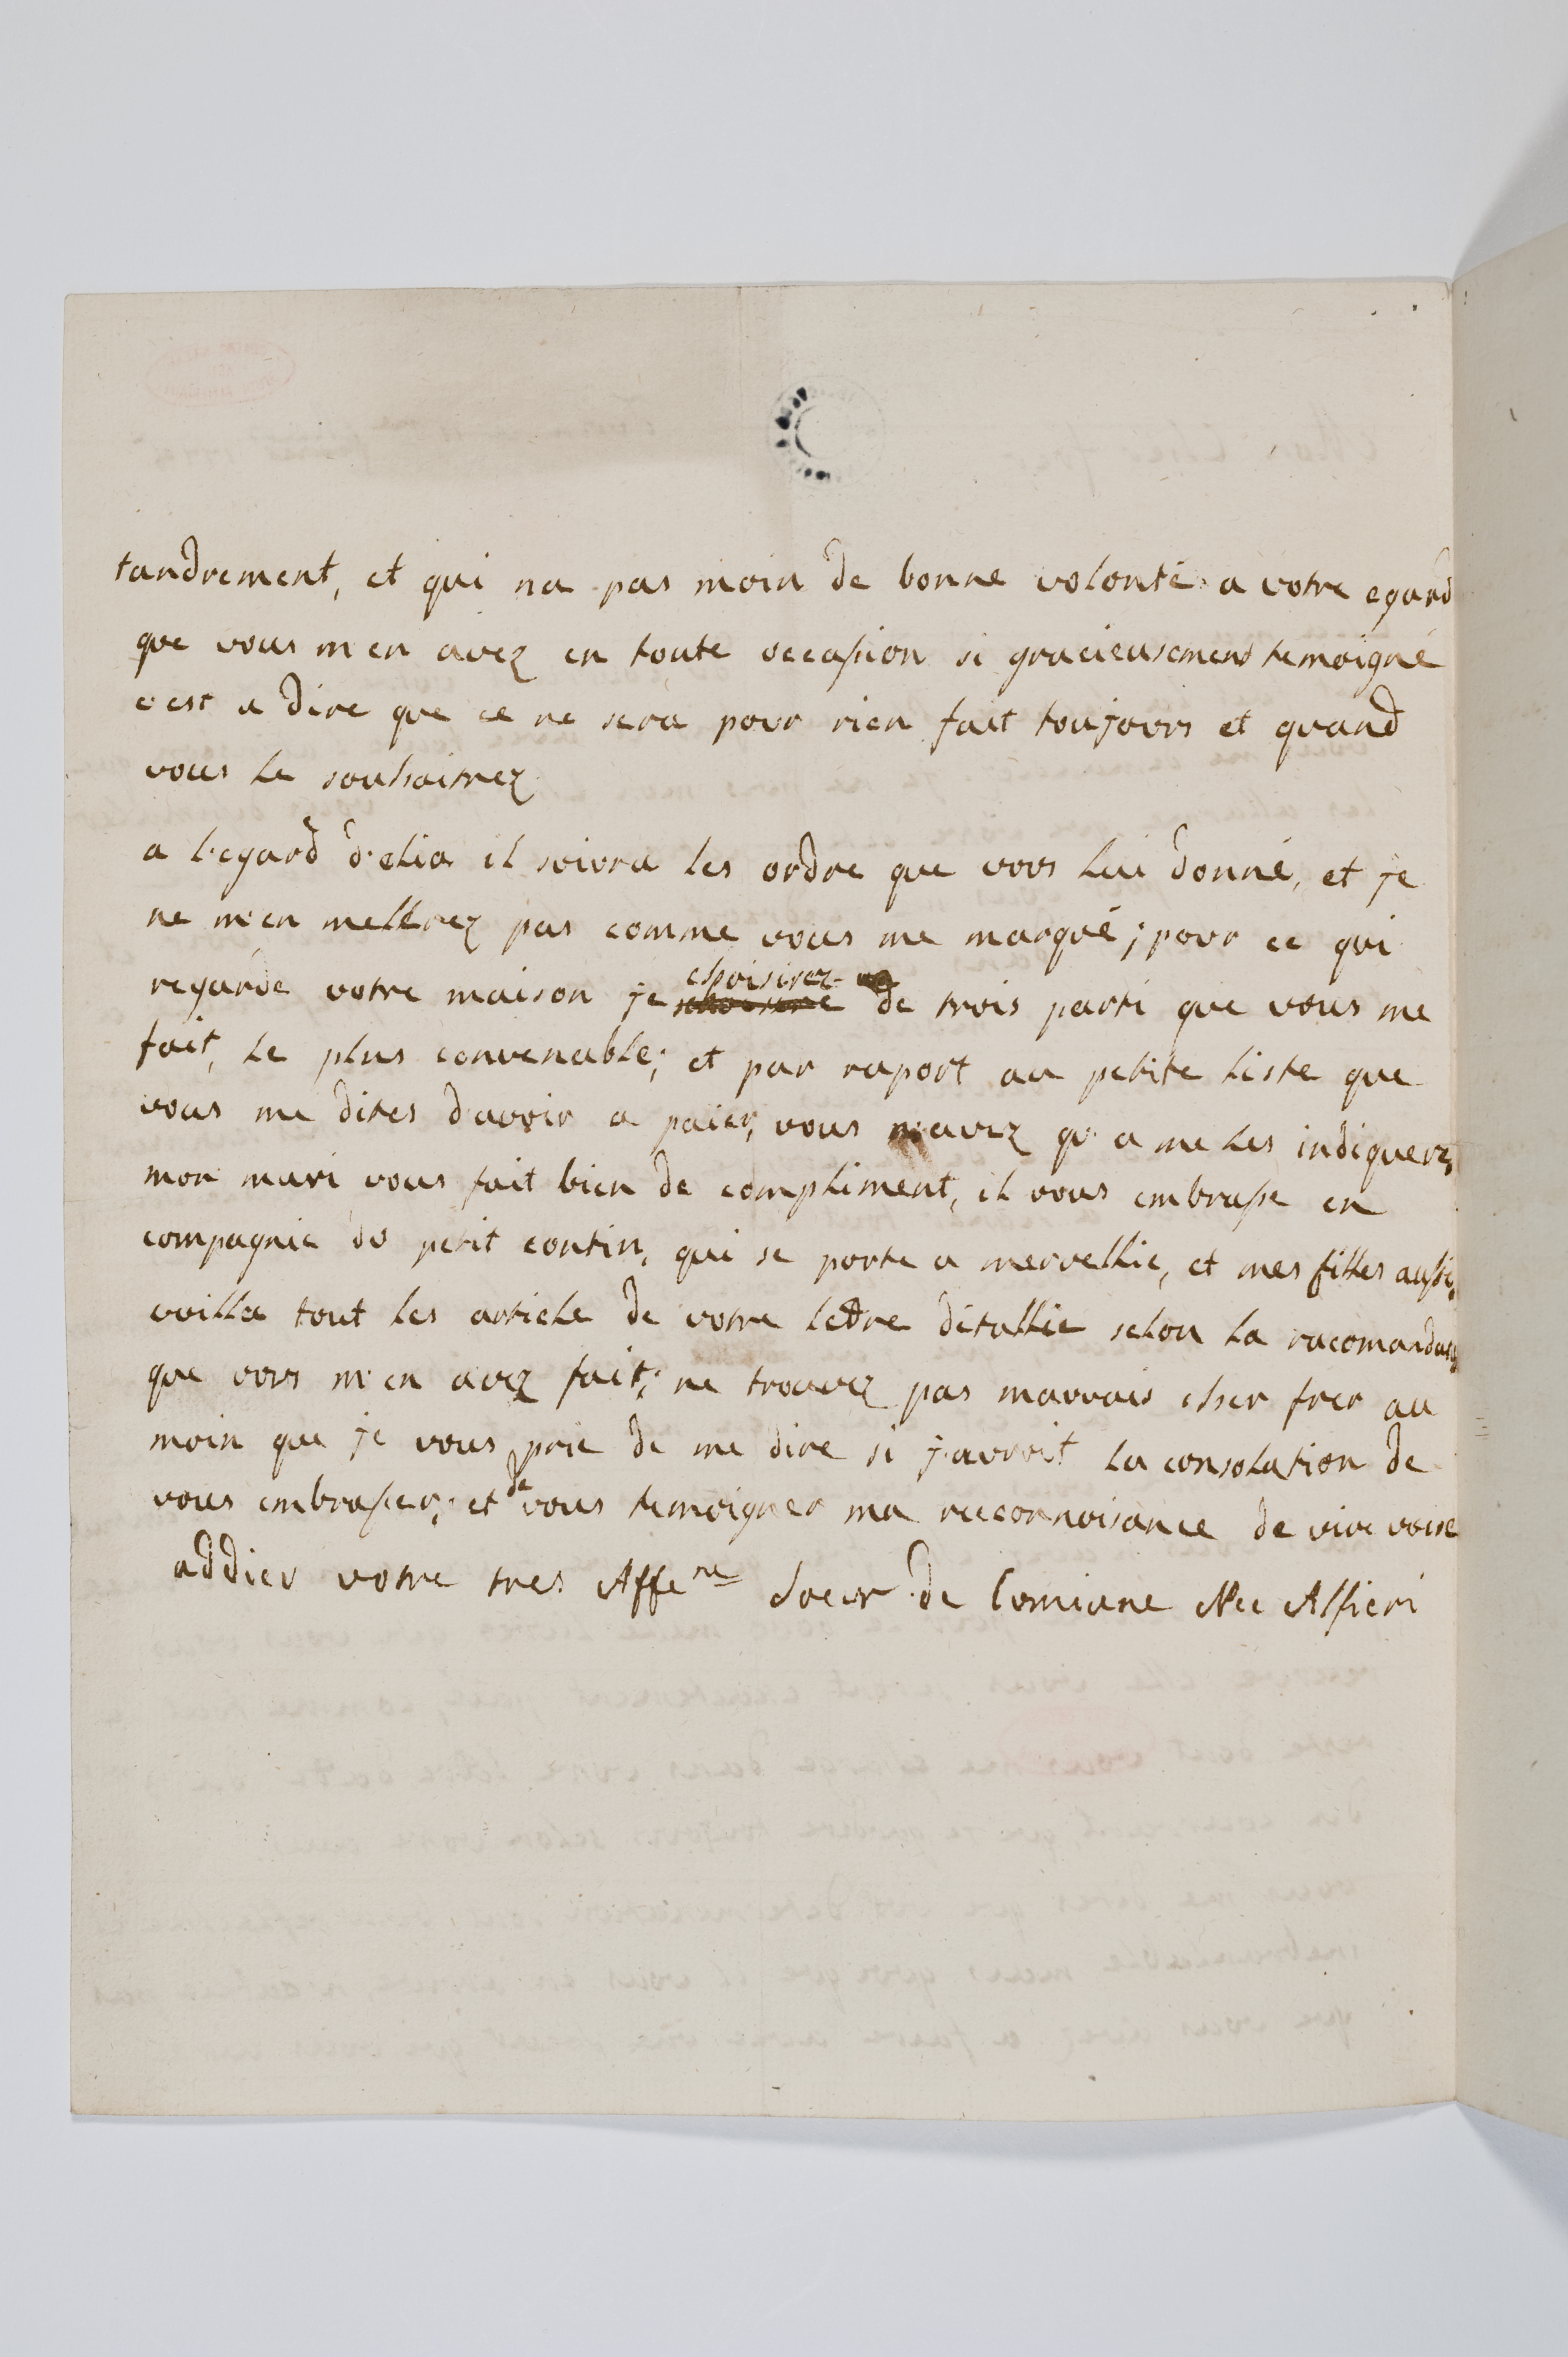 tandrement, et qui na pas moin de bonne volonté a votre egard
que vous m'en avez en toute occasion si gracieusement temoigné
c'est a dire que ce ne sera pour rien fait toujours et quand
vous le souhaitrez
a l'egard d'elia il soivra les ordre que vous lui donné, et je
ne m'en mellerez pas comme vous me marqué; pour ce qui
regarde votre maison je choisirez de trois parti que vous me
fait, le plus convenable; et par raport au petite liste que
vous me dites d'avoir a paier, vous n'avez qu'a me les indiquerz,
mon mari vous fait bien de compliment, il vous embrasse en
compagnie du petit contin, qui se porte a mervellie, et mes filles aussi,
voilla tout les article de votre lettre détallié selon la racomandation
que vous m'en avez fait; ne trouvez pas mauvais cher frer au
moin que je vous prie de me dire si j'auroit la consolation de
vous embrasser, et de vous temoigner ma reconnoisance de vive voise
addieu votre tres Affe.ne Soeur de Cumiane Nee Alfieri